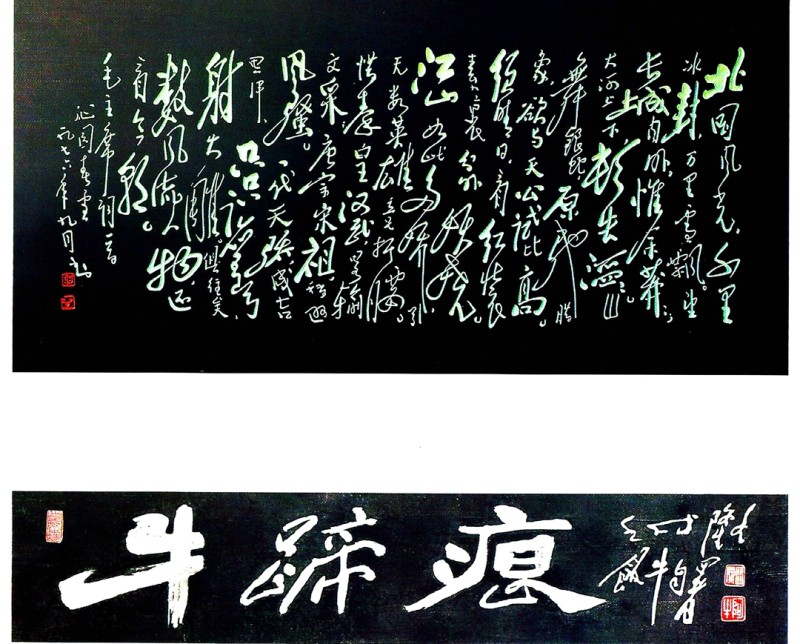 北国风光，千里
冰封万里雪飘。望
长城内外，惟余莽莽；
大河上下，顿失滔滔。山
舞银蛇，原驰腊
象，欲与天公试比高。
须晴日，看红装
素裹，分外妖娆。
江山如此多娇，引
无数英雄竞折腰。
惜秦皇汉武，略输
文采；唐宗宋祖，稍逊
风骚。一代天骄，成吉
思汗，
只识弯弓
射大雕。俱往矣
数风流人物，还
看今朝。
毛主席词一首
沁园春雪
一九七六年九月
牛蹄痕